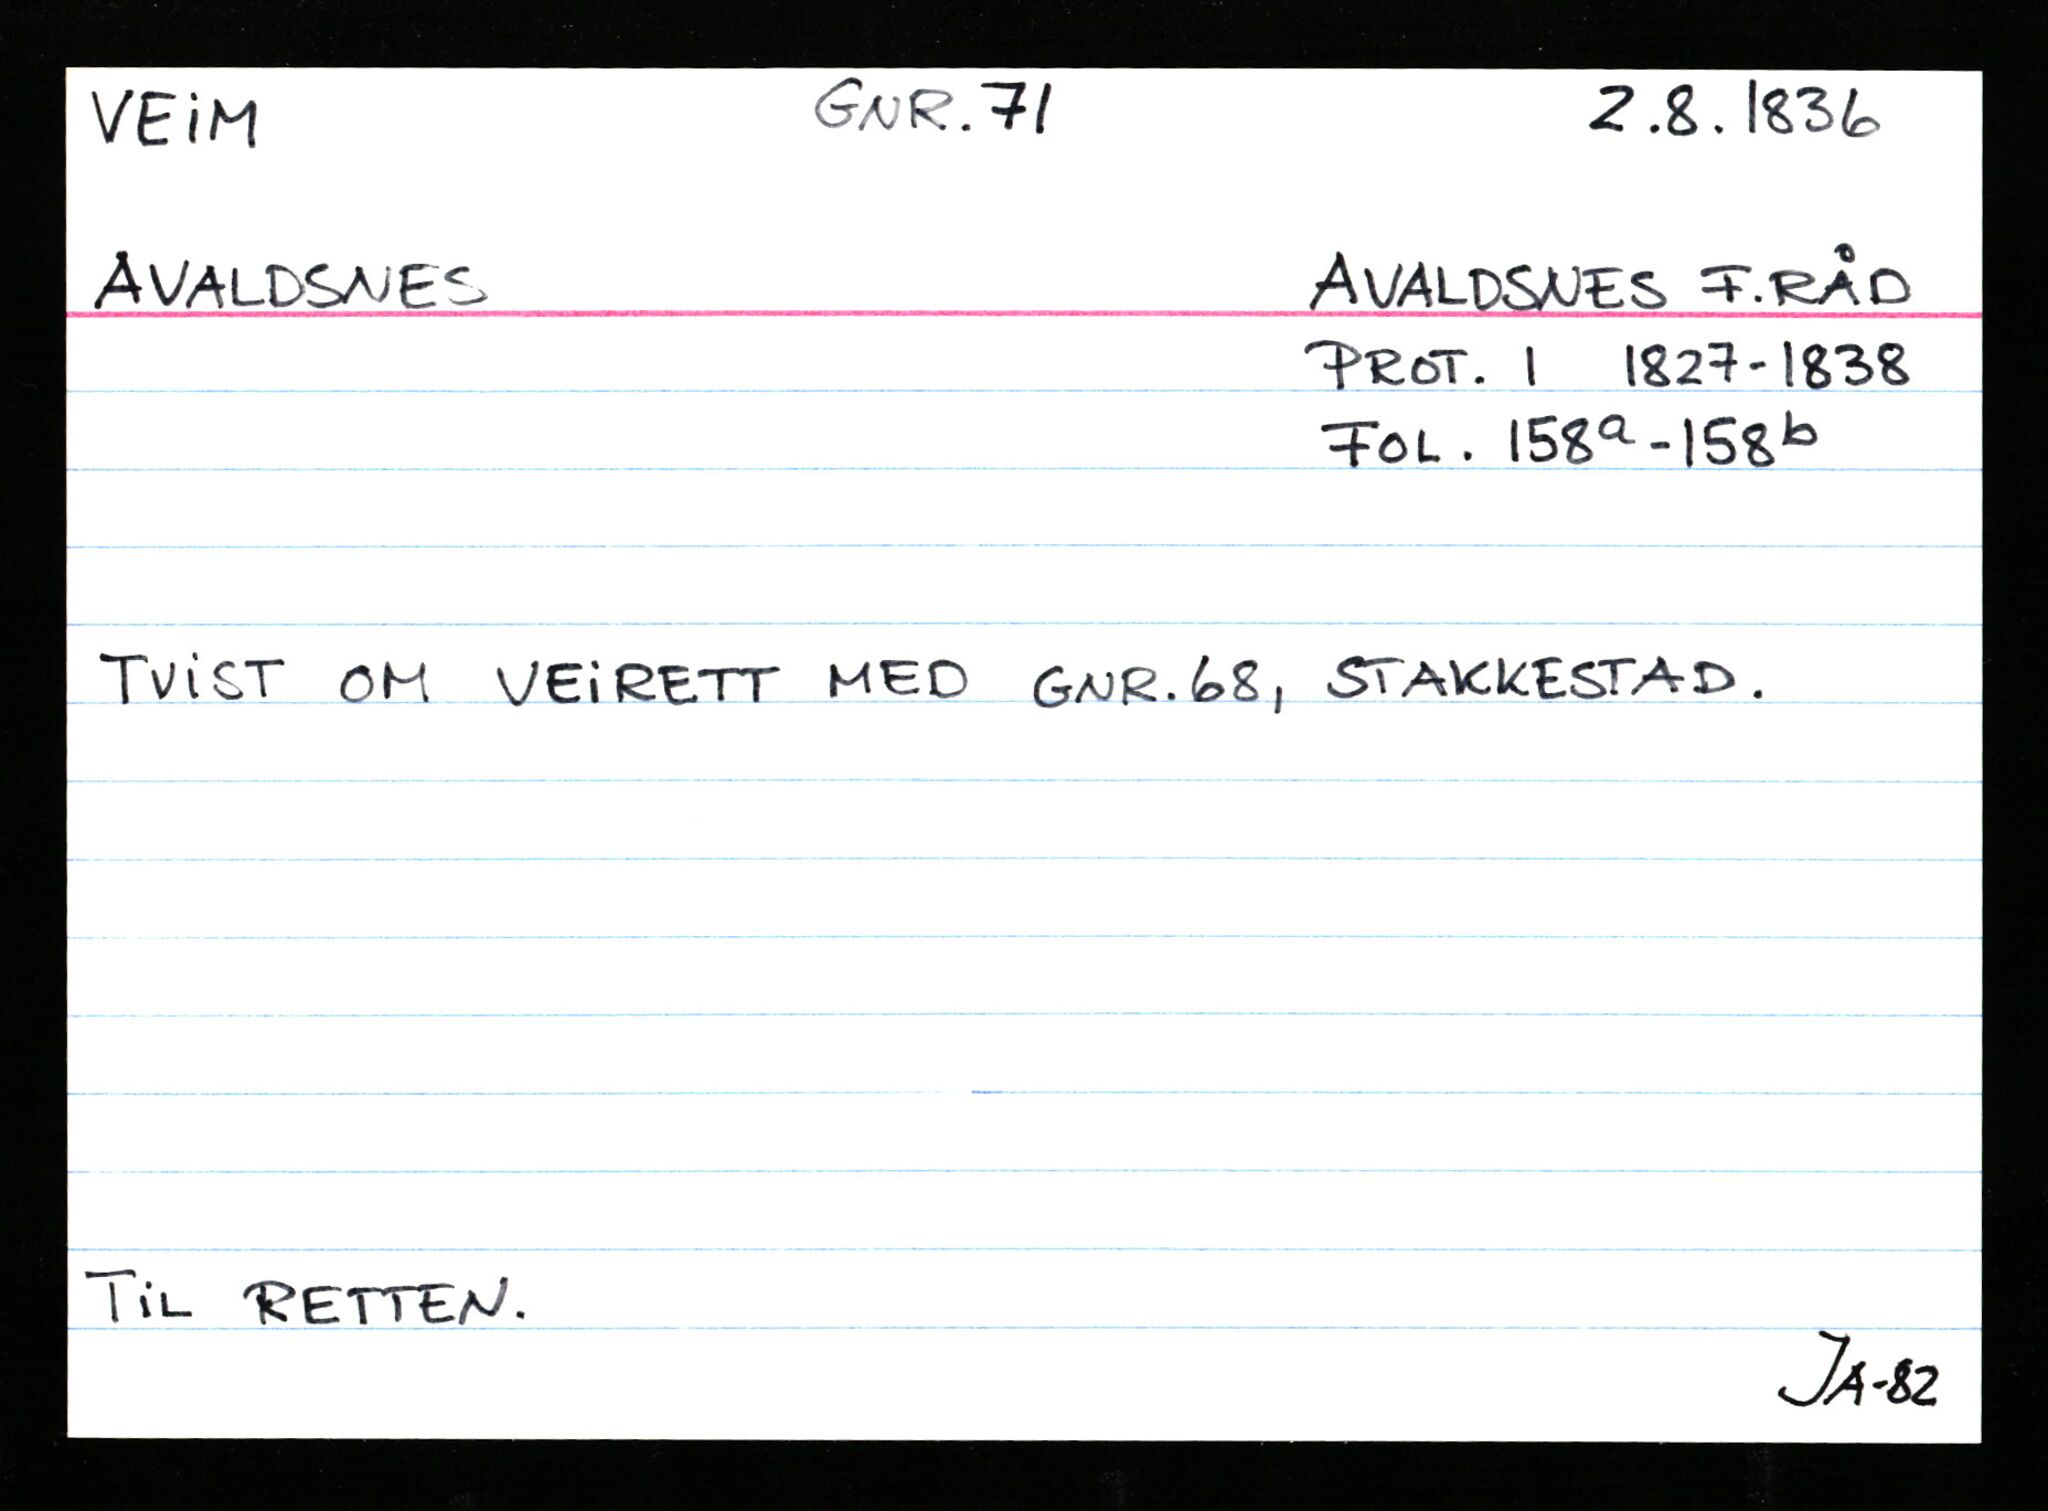 VEiM GNR. 71 2.8.1836
AVALDSNES AVALDSNES F.RÅD
PROT. 1 1827-1838
FOL. 158a-158b
TViST OM VEiRETT MED GNR.68, STAKKESTAD.
TiL RETTEN.
JA-82